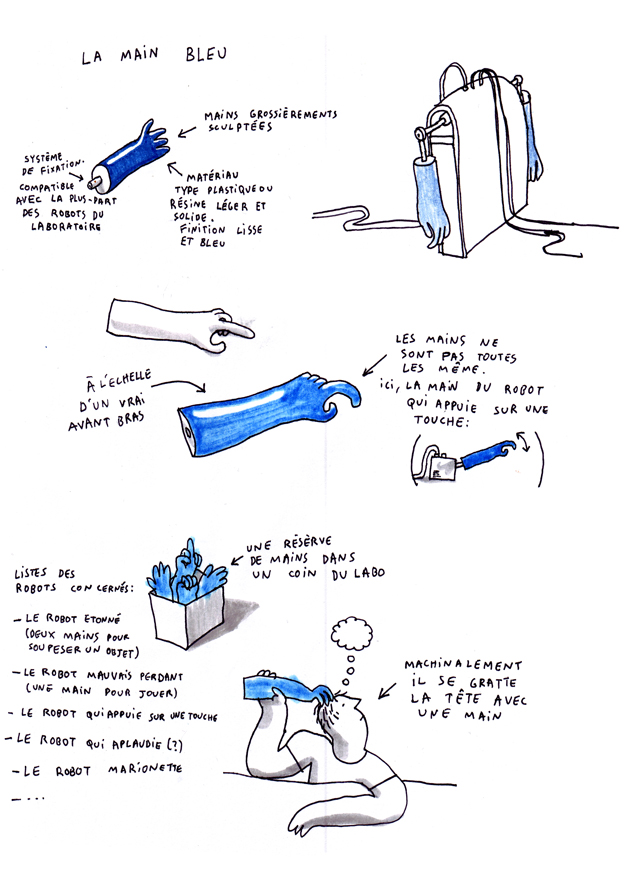 LA MAIN BLEU
MAINS GROSSIÈREMENTS
SCULPTÉES
SYSTÈME
DE FIXATION.
COMPATIBLE
AVEC LA PLUS-PART
DES ROBOTS DU
LABORATOIRE
MATÉRIAU
TYPE PLASTIQUE OU
RÉSINE LÉGER ET
SOLIDE.
FINITION LISSE
ET BLEU
LES MAINS NE
SONT PAS TOUTES
LES MÊME.
ICI, LA MAIN DU ROBOT
QUI APPUIE SUR UNE
TOUCHE:
À L'ECHELLE
D'UN VRAI
AVANT BRAS
UNE RÉSÈRVE
DE MAINS DANS
UN COIN DU LABO
LISTES DES
ROBOTS CONCERNÉS:
- LE ROBOT ETONNÉ
(DEUX MAINS POUR
SOUPESER UN OBJET)
- LE ROBOT MAUVAIS PERDANT
(UNE MAIN POUR JOUER)
- LE ROBOT QUI APPUIE SUR UNE TOUCHE
- LE ROBOT QUI APLAUDIE (?)
- LE ROBOT MARIONETTE
- ...
MACHINALEMENT
IL SE GRATTE
LA TÊTE AVEC
UNE MAIN